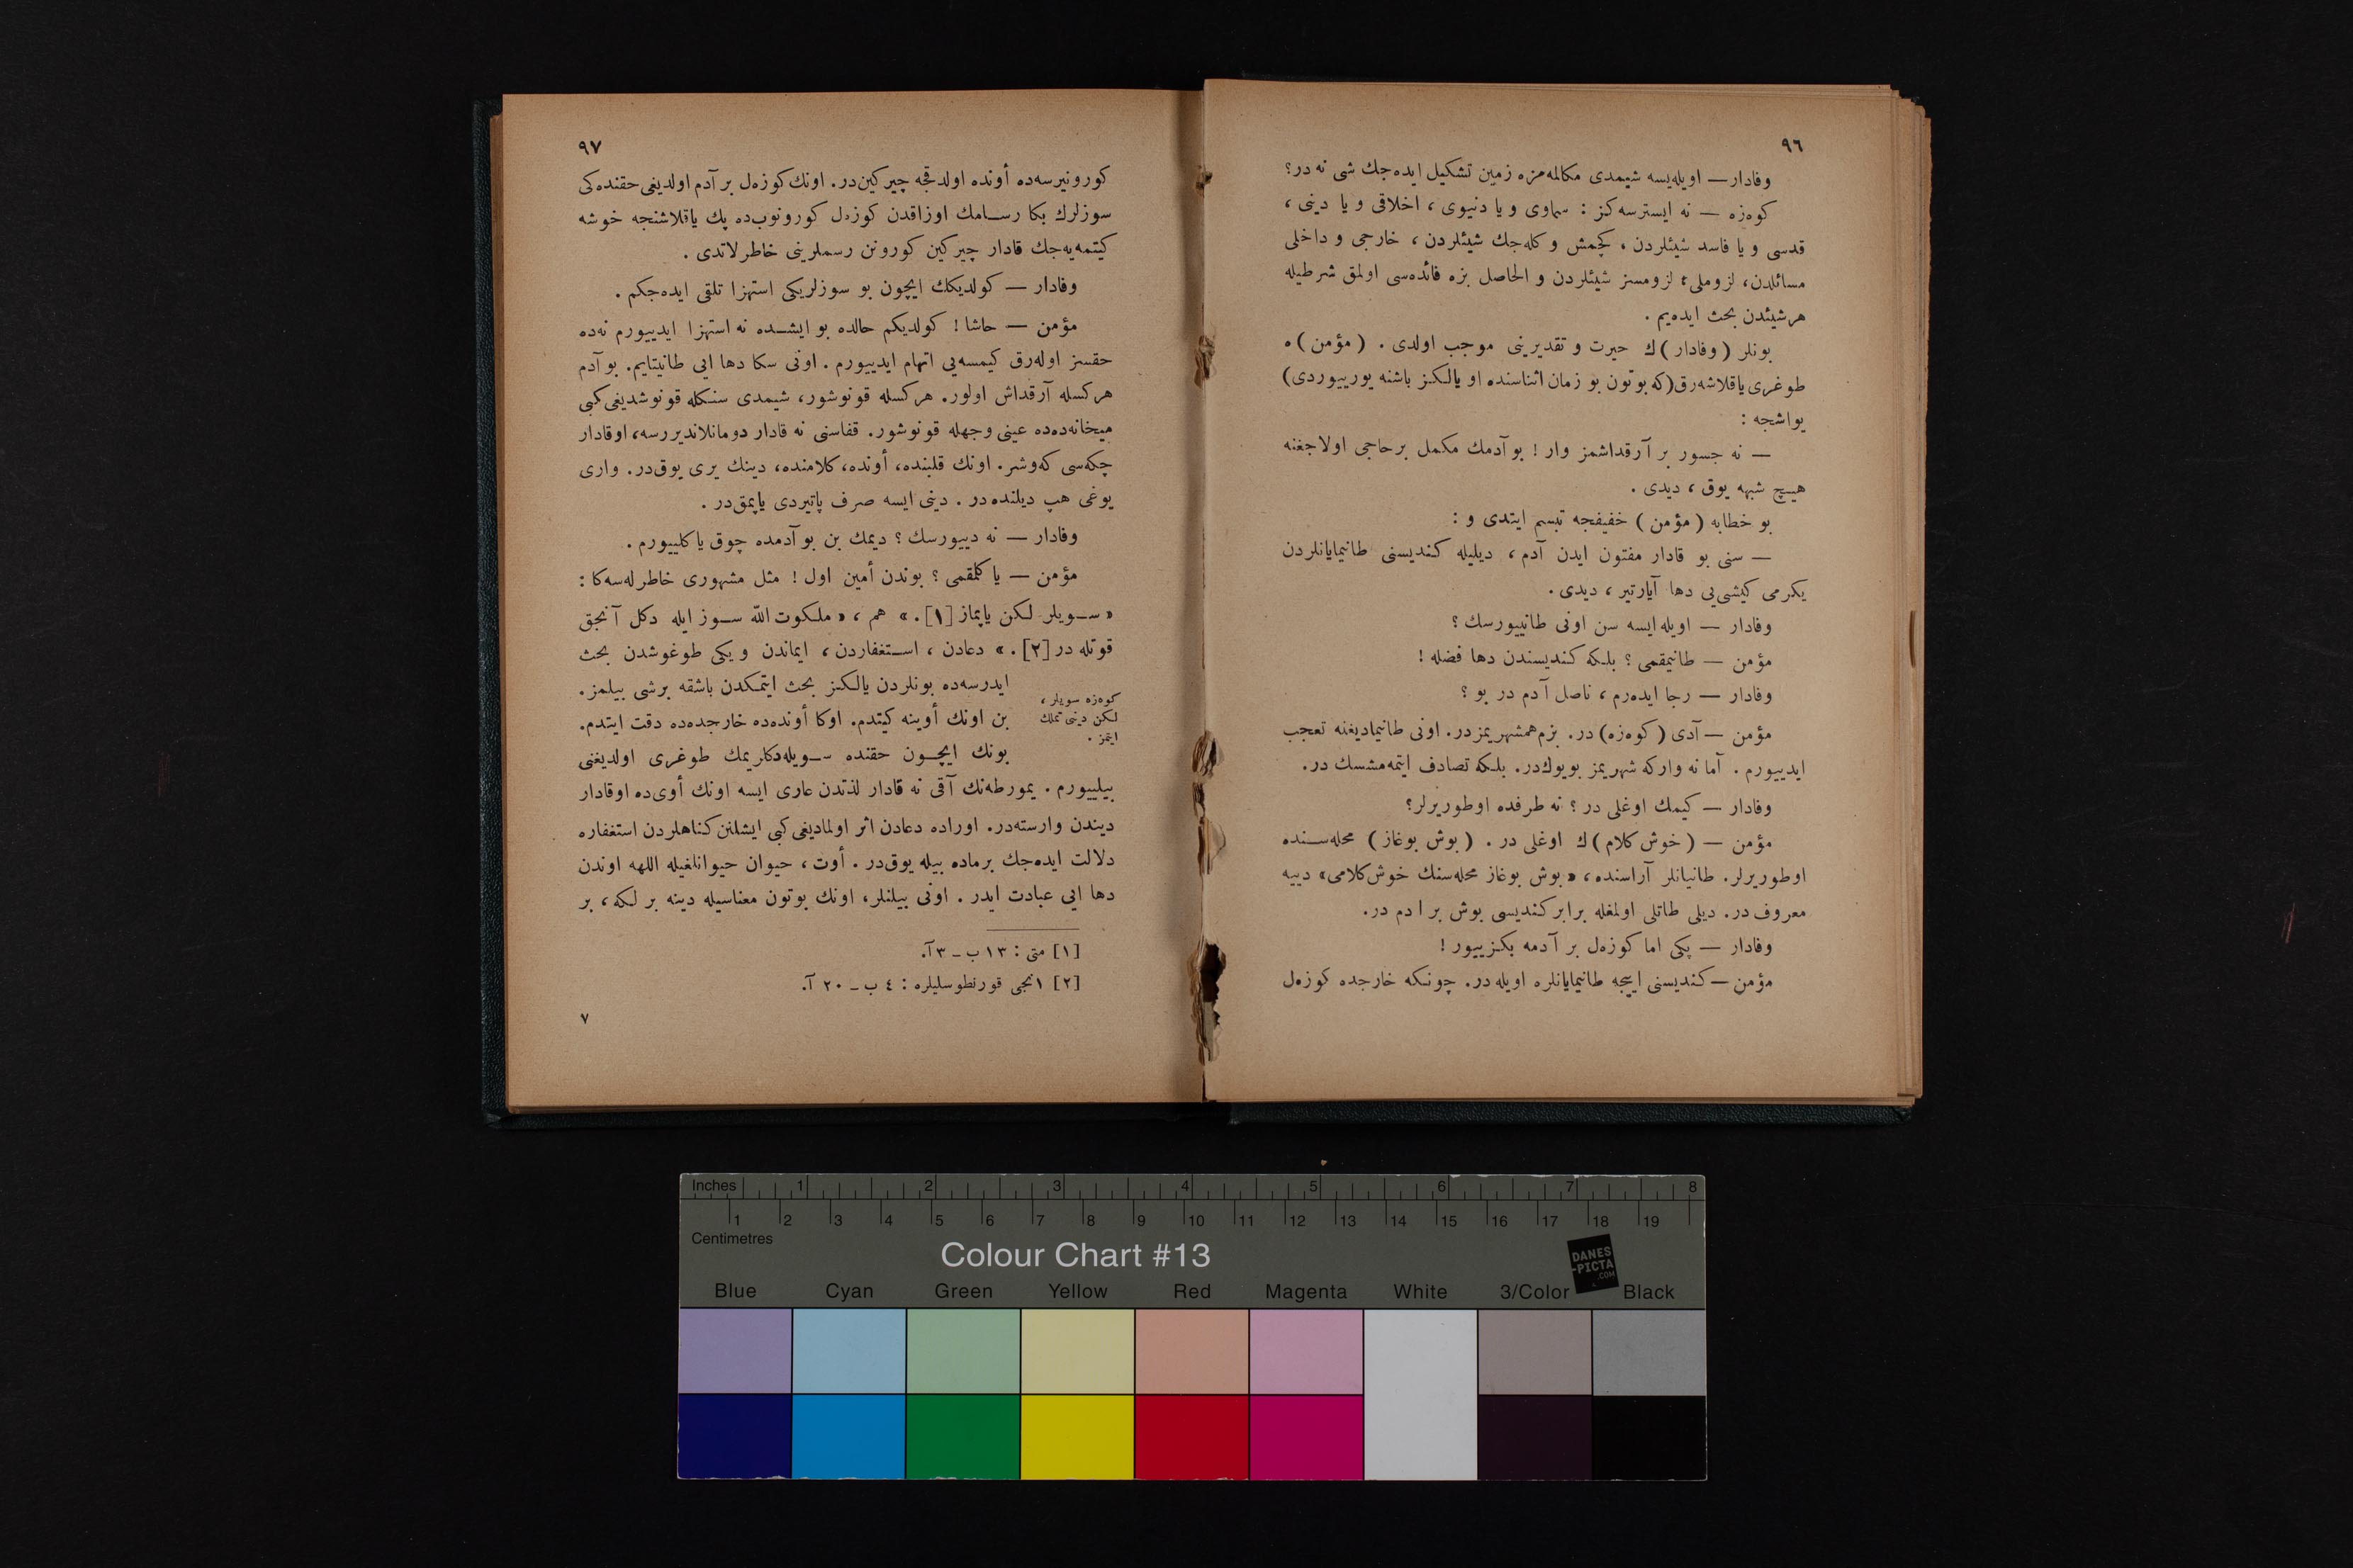 ٩٦
وفادار — اويله‌يسه شيمدى مكالمه‌مزه زمين تشكيل ايده‌جك شى نه در؟
كوه‌زه — نه ايسترسه‌كز : سماوى و يا دنيوى ، اخلاقى و يا دينى ،
قدسى و يا فاسد شيئلردن ، كچمش و كله‌جك شيئلردن ، خارجى و داخلى
مسائلدن، لزوملى، لزومسز شيئلردن و الحاصل بزه فائده‌سى اولمق شرطيله
هرشيئدن بحث ايده‌يم .
بونلر (وفادار)ك حيرت و تقديرينى موجب اولدى . (مؤمن)ه
طوغرى ياقلاشه‌رق(كه بوتون بو زمان اثناسنده او يالكز باشنه يورييوردى)
يواشجه :
— نه جسور بر آرقداشمز وار ! بو آدمك مكمل بر حاجى اولاجغنه
هيچ شبهه يوق ، ديدى .
بو خطابه (مؤمن) خفيفجه تبسم ايتدى و :
— سنى بو قادار مفتون ايدن آدم ، ديليله كنديسنى طانيمايانلردن
يكرمى كيشى‌يى دها آيارتير ، ديدى .
وفادار — اويله ايسه سن اونى طانييورسك ؟
مؤمن — طانيمقمى ؟ بلكه كنديسندن دها فضله !
وفادار — رجا ايده‌رم ، ناصل آدم در بو ؟
مؤمن — آدى (كوه‌زه) در. بزم همشهريمز در. اونى طانيماديغنه تعجب
ايدييورم . آما نه واركه شهريمز بويوك‌در. بلكه تصادف ايتمه‌مشسك در.
وفادار — كيمك اوغلى در ؟ نه طرفده اوطوريرلر؟
مؤمن — (خوش كلام)ك اوغلى در . (بوش بوغاز) محله‌سنده
اوطوريرلر. طانيانلر آراسنده، «بوش بوغاز محله‌سنك خوش‌كلامى» دييه
معروف در. ديلى طاتلى اولمغله برابر كنديسى بوش بر ادم در.
وفادار — پكى اما كوزه‌ل بر آدمه بكزييور !
مؤمن — كنديسنى اييجه طانيمايانلره اويله در. چونكه خارجده كوزه‌ل
٩٧
كورونيرسه‌ده أونده اولدقجه چيركين‌در. اونك كوزه‌ل بر آدم اولديغى حقنده‌كى
سوزلرك بكا رسامك اوزاقدن كوزه‌ل كورونوب‌ده پك ياقلاشنجه خوشه
كيتمه‌يه‌جك قادار چيركين كورونن رسملرينى خاطرلاتدى .
وفادار — كولديكك ايچون بو سوزلريكى استهزا تلقى ايده‌جكم .
مؤمن — حاشا ! كولديكم حالده بو ايشده نه استهزا ايدييورم نه‌ده
حقسز اوله‌رق كيمسه‌يى اتهام ايدييورم . اونى سكا دها ايى طانيتايم. بو آدم
هركسله آرقداش اولور. هركسله قونوشور، شيمدى سنكله قونوشديغى كبى
ميخانه‌ده‌ده عينى وجهله قونوشور. قفاسنى نه قادار دومانلانديررسه، اوقادار
چكه‌سى كه‌وشر. اونك قلبنده، أونده، كلامنده، دينك يرى يوق‌در. وارى
يوغى هپ ديلنده‌در . دينى ايسه صرف پاتيردى ياپمق‌در .
وفادار — نه دييورسك ؟ ديمك بن بو آدمده چوق ياكلييورم .
مؤمن — ياكلمقمى ؟ بوندن أمين اول ! مثل مشهورى خاطرله‌سه‌كا :
«سويلر لكن ياپماز [١] .» هم ، «ملكوت الله سوز ايله دكل آنجق
قوتله در [٢] .» دعادن ، استغفاردن ، ايماندن و يكى طوغوشدن بحث
ايدرسه‌ده بونلردن يالكز بحث ايتمكدن باشقه برشى بيلمز.
كوه‌زه سويلر ،
لكن دينى تملك
ايتمز .
بن اونك أوينه كيتدم. اوكا أونده‌ده خارجده‌ده دقت ايتدم.
بونك ايچون حقنده سويله‌دكلريمك طوغرى اولديغنى
بيلييورم . يمورطه‌نك آقى نه قادار لذتدن عارى ايسه اونك أوى‌ده اوقادار
ديندن وارسته‌در. اوراده دعادن اثر اولماديغى كبى ايشلنن كناهلردن استغفاره
دلالت ايده‌جك برماده بيله يوق‌در . أوت ، حيوان حيوانلغيله اللهه اوندن
دها ايى عبادت ايدر . اونى بيلنلر، اونك بوتون معناسيله دينه بر لكه ، بر
[١] متى : ١٣ ب ـ ٣ آ.
[٢] ١نجى قورنطوسليلره : ٤ ب ـ ٢٠ آ.
٧
Inches 1 2 3 4 5 6 7 8
1 2 3 4 5 6 7 8 9 10 11 12 13 14 15 16 17 18 19
Centimetres
Colour Chart #13
DANES
-PICTA
.COM
Blue Cyan Green Yellow Red Magenta White 3/Color Black